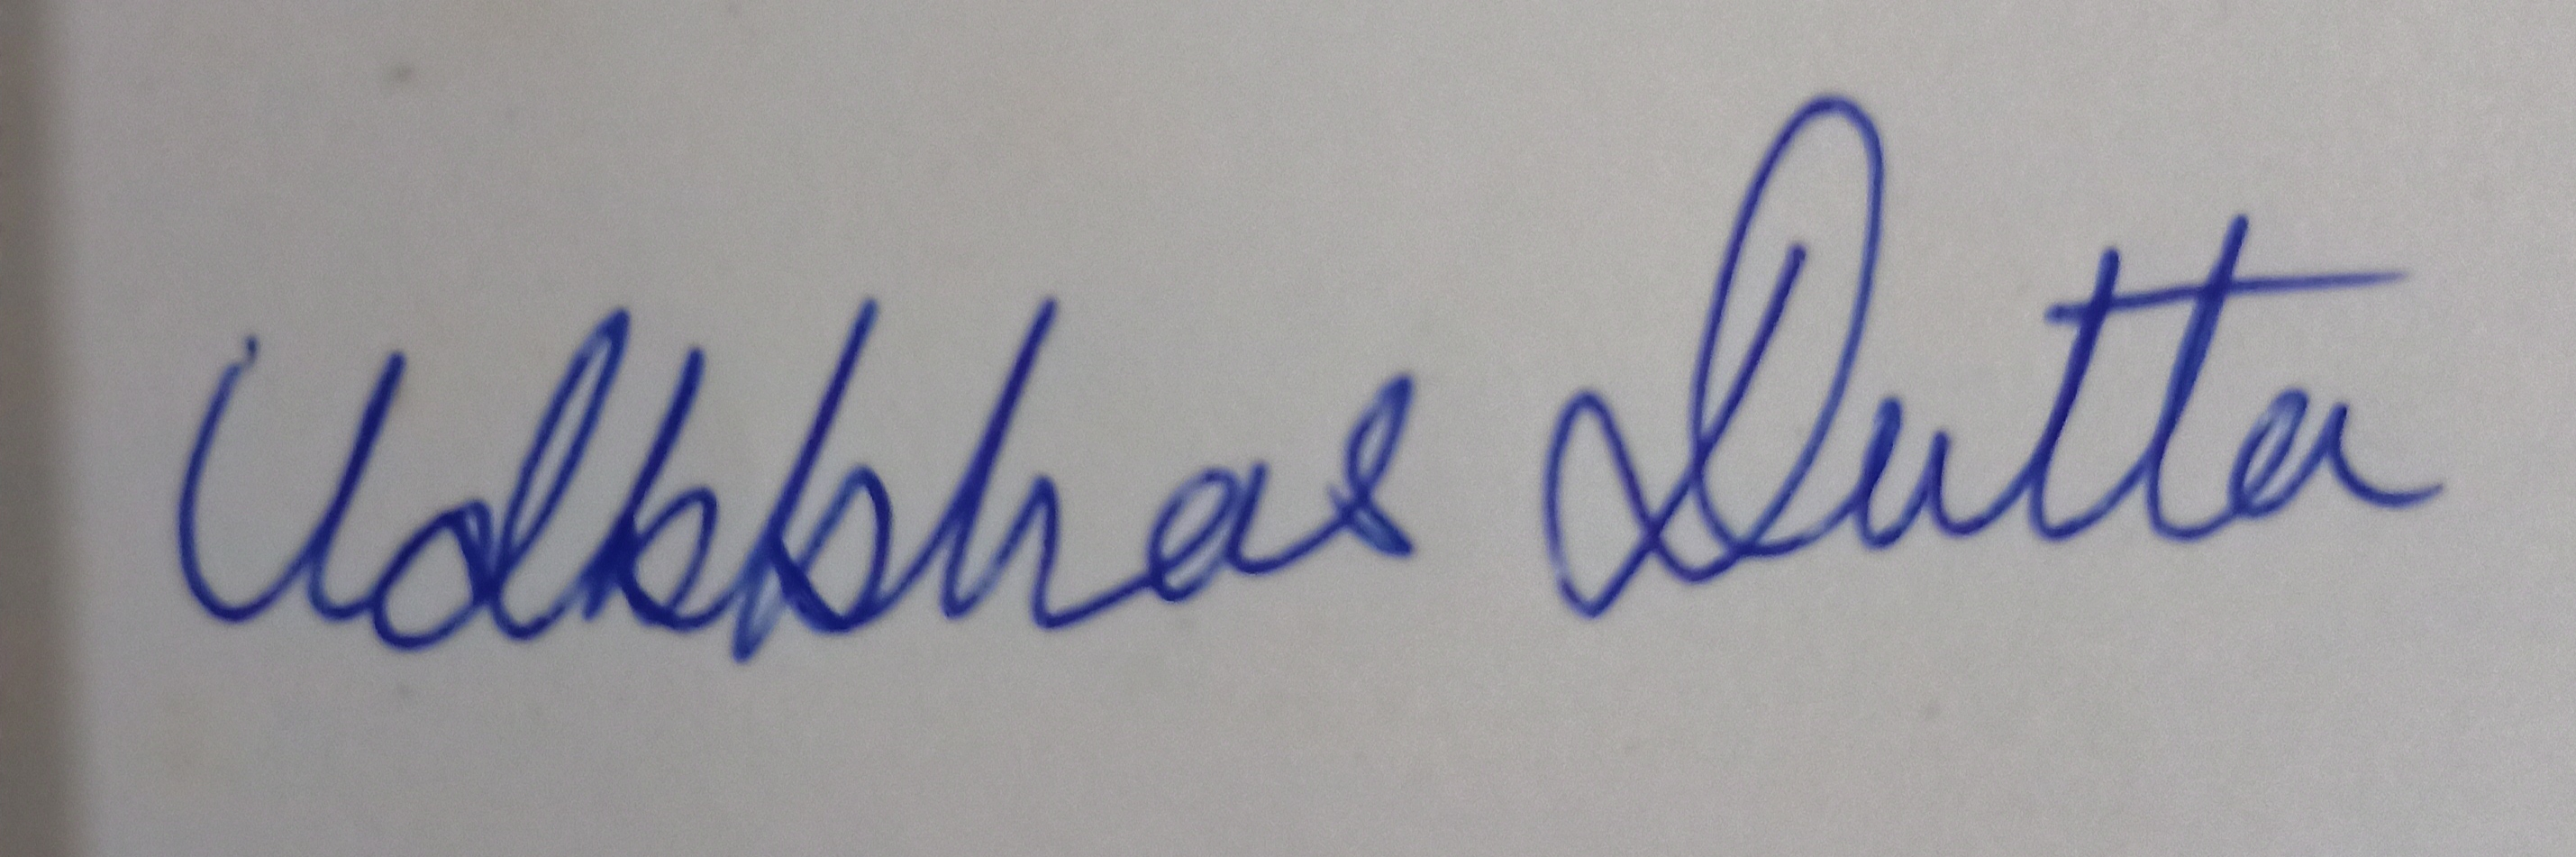 Udbbhas Dutta